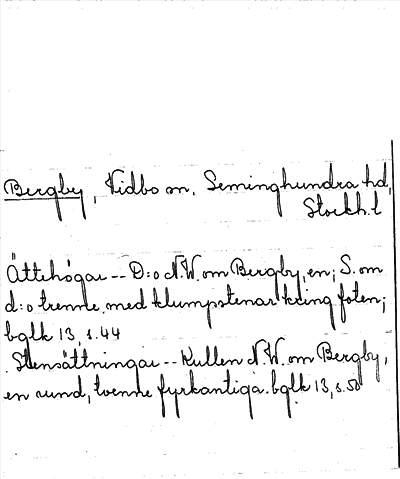 Bergby, Vidbo sn, Seminghundra hd,
Stockh. l
Ättehögar -- D:o N.W. om Bergby, en; S. om
d:o trenne, med klumpstenar kring foten;
bglk 13, s. 44
Stensättningar -- Kullen N.W. om Bergby,
en rund, tvenne fyrkantiga. bglk 13, s. 50